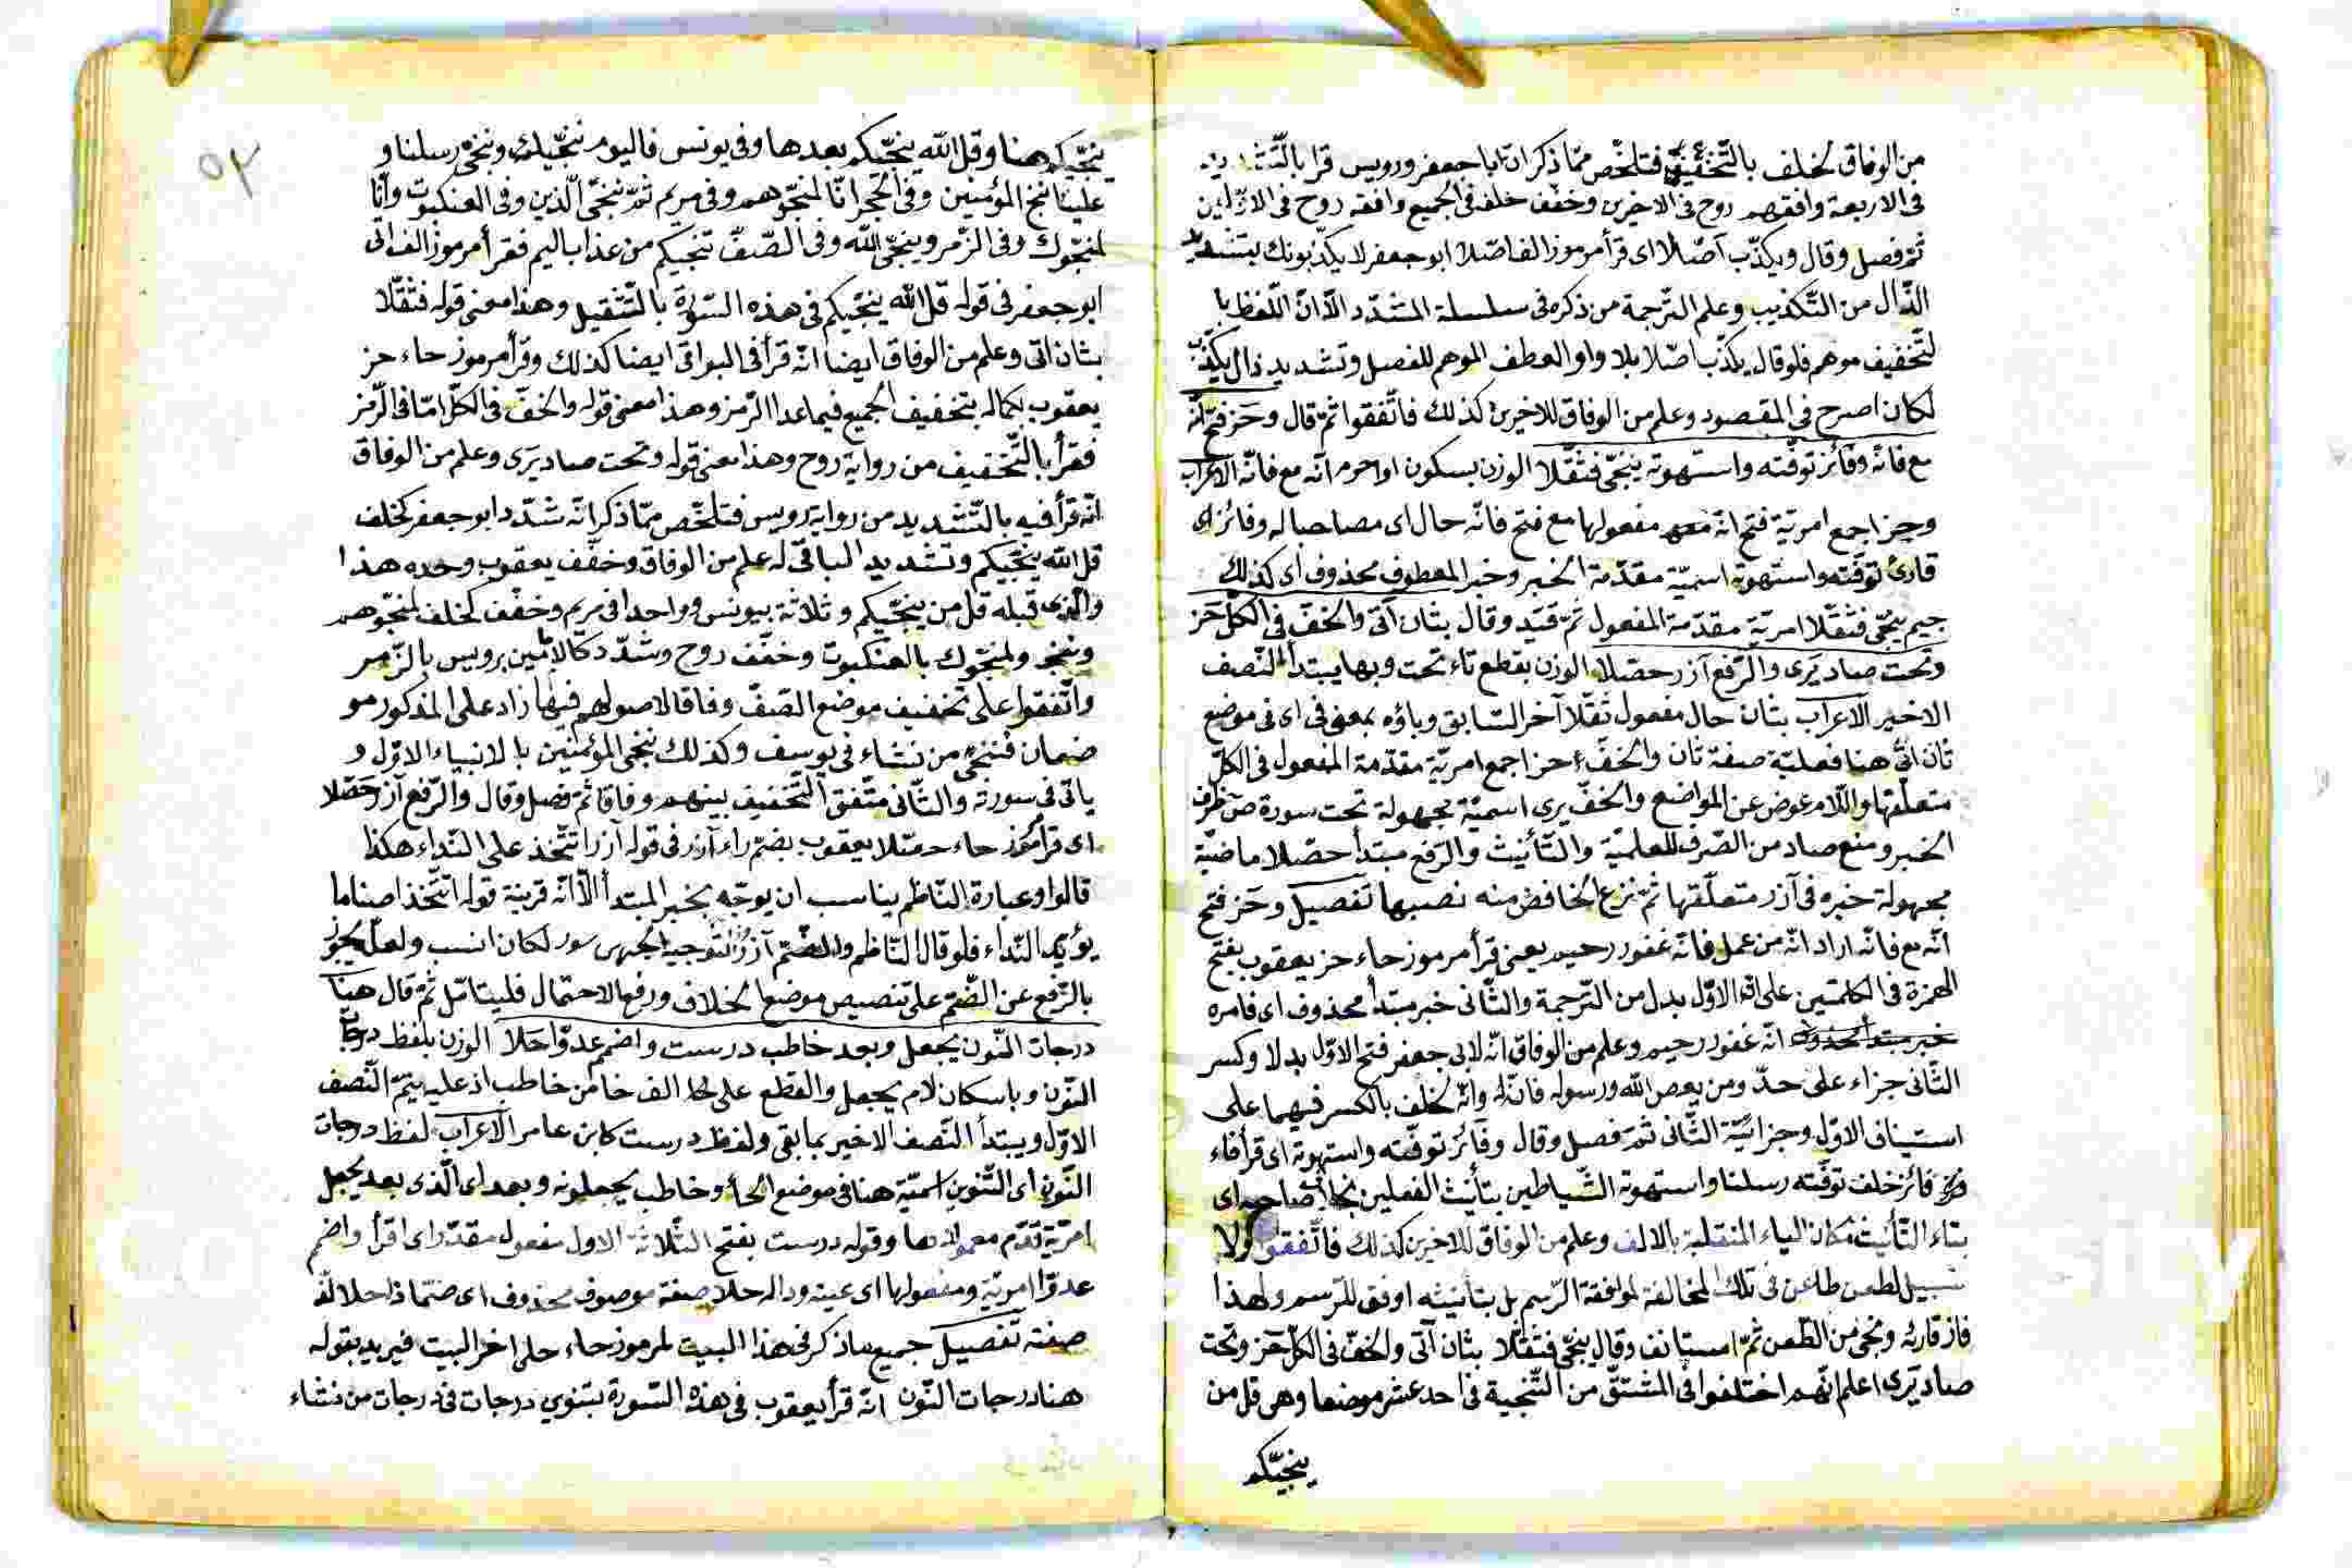 من الوفاق لخلف بالتّخفيف فتلخّص ممّا ذكر انّ ابا جعفر ورويس قرا
فى الاربعة وافقهم روح فى الاخرى وخفّف خلف فى الجميع وافقه روح فى الاوّلين
ثمّ فصل وقال ويكذّب اصّلا اى قرأ مرموز الف اصّلا ابو جعفر لا يكذّبونك بتشديد
الذّال من التّكذيب وعلم التّرجمة من ذكره فى سلسلة المشدّد الّا انّ اللّفظ با
لتّخفيف موهم فلو قال يكذّب اصّلا بلا واو العطف الموهم للفصل وتشديد ذال يكذّب
لكان اصرح فى المقصود وعلم من الوفاق للاخرين كذلك فاتّفقوا ثمّ قال وحز فتح انّه
مع فانّه وفائز توفّته واستهوته ينجّى فثقّلا الوزن بسكون او اخر انّه مع فانّه الاعراب
وحز اجمع امريّة فتح انّه مفعولها مع فتح فانّه حال اى مصاحبا له وفائز اى
قارئ توفّته واستهوته اسميّة مقدّمة الخبر وخبر المعطوف محذوف اى كذلك
جيم ينجّى فثقّلا امريّة مقدّمة المفعول ثمّ قيّد وقال بثان اتى والخفّ فى الكلّ حز
وتحت صاد يرى والرّفع آزر حصّلا الوزن بقطع تاء تحت وبها يبتدأ النّصف
الاخير الاعراب بثان حال مفعول ثقّلا آخر السّابق وباؤه بمعنى فى اى فى موضع
ثان اتى هنا فعليّة صفة ثان والخفّ حز اجمع امريّة مقدّمة المفعول فى الكلّ
متعلّقها واللّام عوض عن المواضع والخفّ يرى اسميّة مجهولة تحت سورة ص ظرف
الخبر ومنع صاد من الصّرف للعلميّة والتّأنيث والرّفع مبتدأ حصّلا ماضيّة
مجهولة خبره فى آزر متعلّقها ثمّ نزع الخافض منه نصبها تفصيل وحز فتح
انّه مع فانّه اراد انّه من عمل فانّه غفور رحيم يعنى قرأ مرموز حاء حز يعقوب بفتح
الهمزة فى الكلمتين على انّه الاوّل بدل من الترجمة والثّانى خبر مبتدأ محذوف اى فامره
خبر مبتدأ محذوف انّه غفور رحيم وعلم من الوفاق انّه لابى جعفر فتح الاوّل بدلا وكسر
الثّانى جزاء على حدّ ومن يعص اللّه ورسوله فانّ له وانّه لخلف بالكسر فيهما على
استيناف الاوّل وجزائيّة الثّانى ثمّ فصل وقال وفائز توفّته واستهوته اى قرأ فاء
فائز خلف توفّته رسلنا واستهوته الشّياطين بتأنيث الفعلين صاحبه اى
بتاء التّأنيث مكان الياء المنقلبة بالالف وعلم من الوفاق للاخرين كذلك فاتّفقوا ولا
سبيل لطعن طاعن فى تلك المخالفة لموافقة الرّسم بل بتأنيثه اوفق للرّسم ولهذا
فاز قارئه ونجى من الطّعن ثمّ استانف وقال ينجّى فثقّلا بثان آتى والخفّ فى الكلّ حز وتحت
صاد يرى اعلم انّهم اختلفوا فى المشتقّ من التّنجية فى احد عشر موضعا وهى قل من
ينجّيكم
٥٢
ينجّيكم هنا وقل اللّه ينجّيكم بعدها وفى يونس فاليوم ننجّيك وننجّى رسلنا و
علينا ننج المؤمنين وفى الحجر انّا لمنجّوهم وفى مريم ثمّ ننجّى الّذين وفى العنكبوت وانّا
لمنجّوك وفى الزّمر وينجّى اللّه وفى الصّفّ تنجيكم من عذاب اليم فقرأ مرموز الف اتى
ابو جعفر فى قوله قل اللّه ينجّيكم فى هذه السّورة بالتّثقيل وهذا معنى قوله فثقّلا
بثان اتى وعلم من الوفاق ايضا انّه قرأ فى البواقى ايضا كذلك وقرأ مرموز حاء حز
يعقوب بكماله بتخفيف الجميع فيما عدا الزّمر وهذا معنى قوله والخفّ فى الكلّ امّا فى الزّمر
فقرأ بالتّخفيف من رواية روح وهذا معنى قوله وتحت صاد يرى وعلم من الوفاق
انّه قرأ فيه بالتّشديد من رواية رويس فتلخّص ممّا ذكر انّه شدّد ابو جعفر كخلف
قل اللّه ينجّيكم وتشديد الباقى له علم من الوفاق وخفّف يعقوب وحده هذا
والّذى قبله قل من ينجّيكم وثلاثة بيونس وواحدا فى مريم وخفّف كخلف لمنجّوهم
وننجّ ولمنجّوك بالعنكبوت وخفّف روح وشدّد كالامّين رويس بالزّمر
واتّفقوا على تخفيف موضع الصّفّ وفاقا لاصولهم فيها زاد على المذكور مو
ضعان فننجى من نشاء فى يوسف وكذلك ننجى المؤمنين بالانبياء الاوّل و
ياتى فى سورته والثّانى متّفق التّخفيف بينهم وفاقا ثمّ فصل وقال والرّفع آزر حصّلا
اى قرأ مرموز حاء حصّلا يعقوب بضمّ راء آزر فى قوله آزر اتتّخذ على النّداء هكذا
قالوا وعبارة النّاظم يناسب ان يوجّه بخبر المبتدأ الّا انّه قرينة قوله اتتّخذ اصناما
يؤيّد النّداء فلو قال النّاظم والضّم آزر لكان انسب ولعلّ يجوز
بالرّفع عن الضّم على تنصيص موضع الخلاف ورفع الاحتمال فليتامّل ثمّ قال هنا
درجات النّون يجعل وبعد خاطب درست واضمم عدوّا حلا الوزن بلفظ درجات
النّون وباسكان لام يجعل والقطع على الف خا من خاطب اذ عليه يتمّ النّصف
الاوّل ويبتدأ النّصف الاخير بما بقى ولفظ درست كابن عامر الاعراب لفظ درجات
النّون اى التّنوين اسميّة هنا فى موضع الحال وخاطب يجعلونه وبعد اى الّذى بعد يجعل
امريّة تقدّم معمولاتها وقوله درست بفتح الثّلاثة الاول مفعول مقدّر اى اقرأ واضمم
عدوّا امريّة ومفعولها اى عينه وداله حلا صفة موصوف محذوف اى ضمّا ذا حلا
صفة تفصيل جميع ما ذكر فى هذا البيت لمرموز حاء حلا اخر البيت فيريد بقوله
هنا درجات النّون انّه قرأ يعقوب فى هذه السّورة بتنوين درجات فى درجات من نشاء